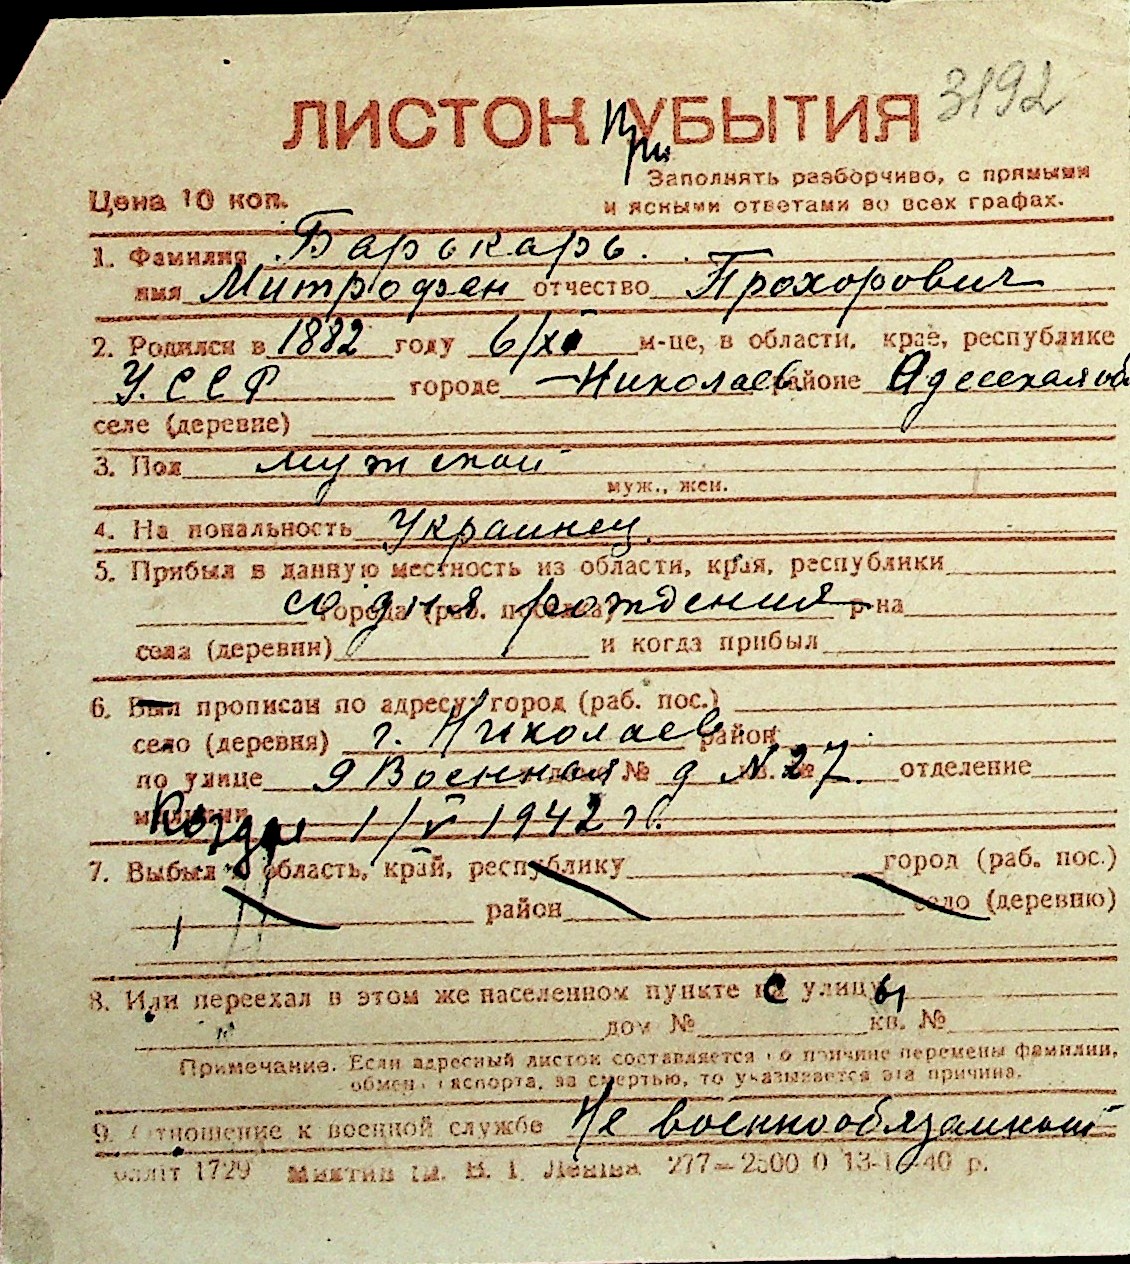 3192
ЛИСТОК При УБЫТИЯ
Заполнять разборчиво, с прямыми
Цена 10 коп. и ясными ответами во всех графах.
1. Фамилия Барокарь
имя Митрофан отчество Прохорович
2. Родился в 1882 году 6/XI м-це, в области, крае, республике
У.ССР городе Николаев районе Адесская об
селе (деревне)
3. Пол мужской
муж., жен.
4. Национальность Украинец
5. Прибыл в данную местность из области, края, республики
со дня рождения города (раб. поселка) р-на
села (деревни) и когда прибыл
6. Был прописан по адресу: город (раб. пос.)
село (деревня) г. Николаев район
по улице 9 Военная № д N 27 кв. № отделение
милиции Когда 1/V 1942 г.
7. Выбыл в область, край, республику город (раб. пос.)
район село (деревню)
8. Или переехал в этом же населенном пункте с улицы
дом № кв. №
Примечание. Если адресный листок составляется по причине перемены фамилии,
обмена паспорта, за смертью, то указывается эта причина.
9. Отношение к военной службе Не военнообязанный
1729 В. І. Леніна 277—2500 0 40 р.